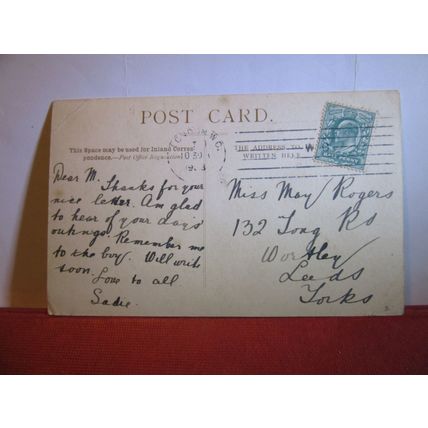 POST CARD.
This Space may be used for Inland Corres-
pondence.—Post Office Regulation.
THE ADDRESS TO
WRITTEN HERE
Dear M. Thanks for your
nice letter. Am glad
to hear of your day's
outing. Remember me
to the boy. Will write
soon.
Love to all
Sadie.
Miss May Rogers
132 Tong Rd
Wortley
Leeds
Yorks